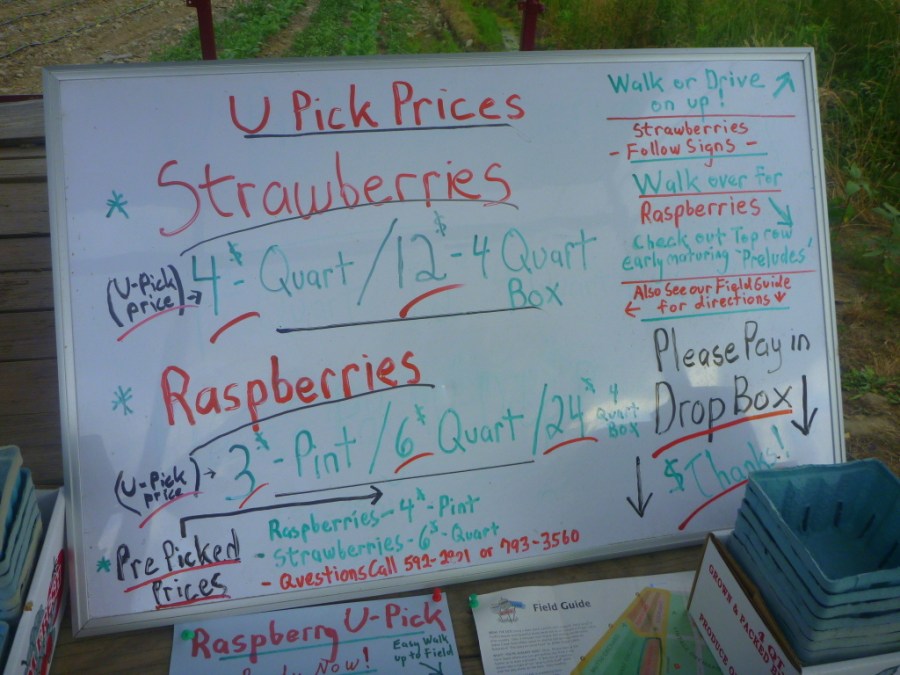 U Pick Prices
* Strawberries
(U-Pick price) → 4$ - Quart / 12$ - 4 Quart Box
* Raspberries
(U-Pick price) → 3$ - Pint / 6$ Quart / 24$ 4 Quart Box
* Pre Picked Prices
Raspberries - 4$ - Pint
- Strawberries - 6$ - Quart
- Questions Call 592- or 793-3560
Walk or Drive
on up!
Strawberries
- Follow Signs -
Walk over for
Raspberries
Check out Top row
early maturing 'Preludes'
Also See our Field Guide
← for directions ↓
Please Pay in
Drop Box
$ Thanks!
Raspberry U-Pick
Now!
Easy Walk
up to Field
Field Guide
GROWN & PACKED
PRODUCE
4 QT